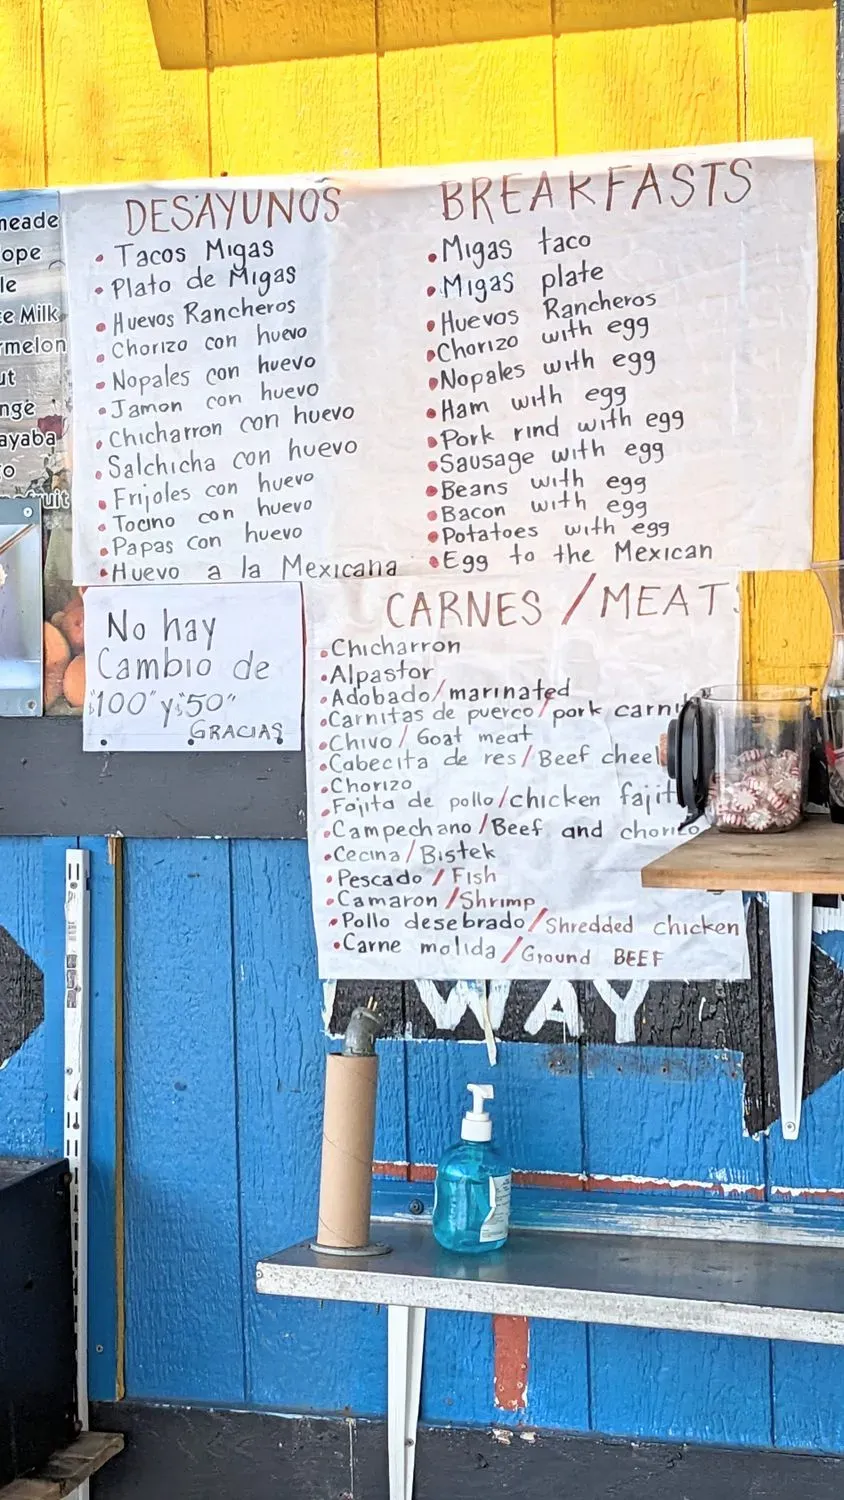 DESAYUNOS
• Tacos Migas
• Plato de Migas
• Huevos Rancheros
• Chorizo con huevo
• Nopales con huevo
• Jamon con huevo
• Chicharron con huevo
• Salchicha con huevo
• Frijoles con huevo
• Tocino con huevo
• Papas con huevo
• Huevo a la Mexicana
BREAKFASTS
• Migas taco
• Migas plate
• Huevos Rancheros
• Chorizo with egg
• Nopales with egg
• Ham with egg
• Pork rind with egg
• Sausage with egg
• Beans with egg
• Bacon with egg
• Potatoes with egg
• Egg to the Mexican
No hay
Cambio de
$100" y $50"
GRACIAS
CARNES / MEATS
• Chicharron
• Alpastor
• Adobado/marinated
• Carnitas de puerco/pork carnit
• Chivo/Goat meat
• Cabecita de res/Beef cheek
• Chorizo
• Fajita de pollo/chicken fajit
• Campechano/Beef and chorizo
• Cecina/Bistek
• Pescado/Fish
• Camaron/Shrimp
• Pollo desebrado/Shredded chicken
• Carne molida/Ground BEEF
WAY
Milk